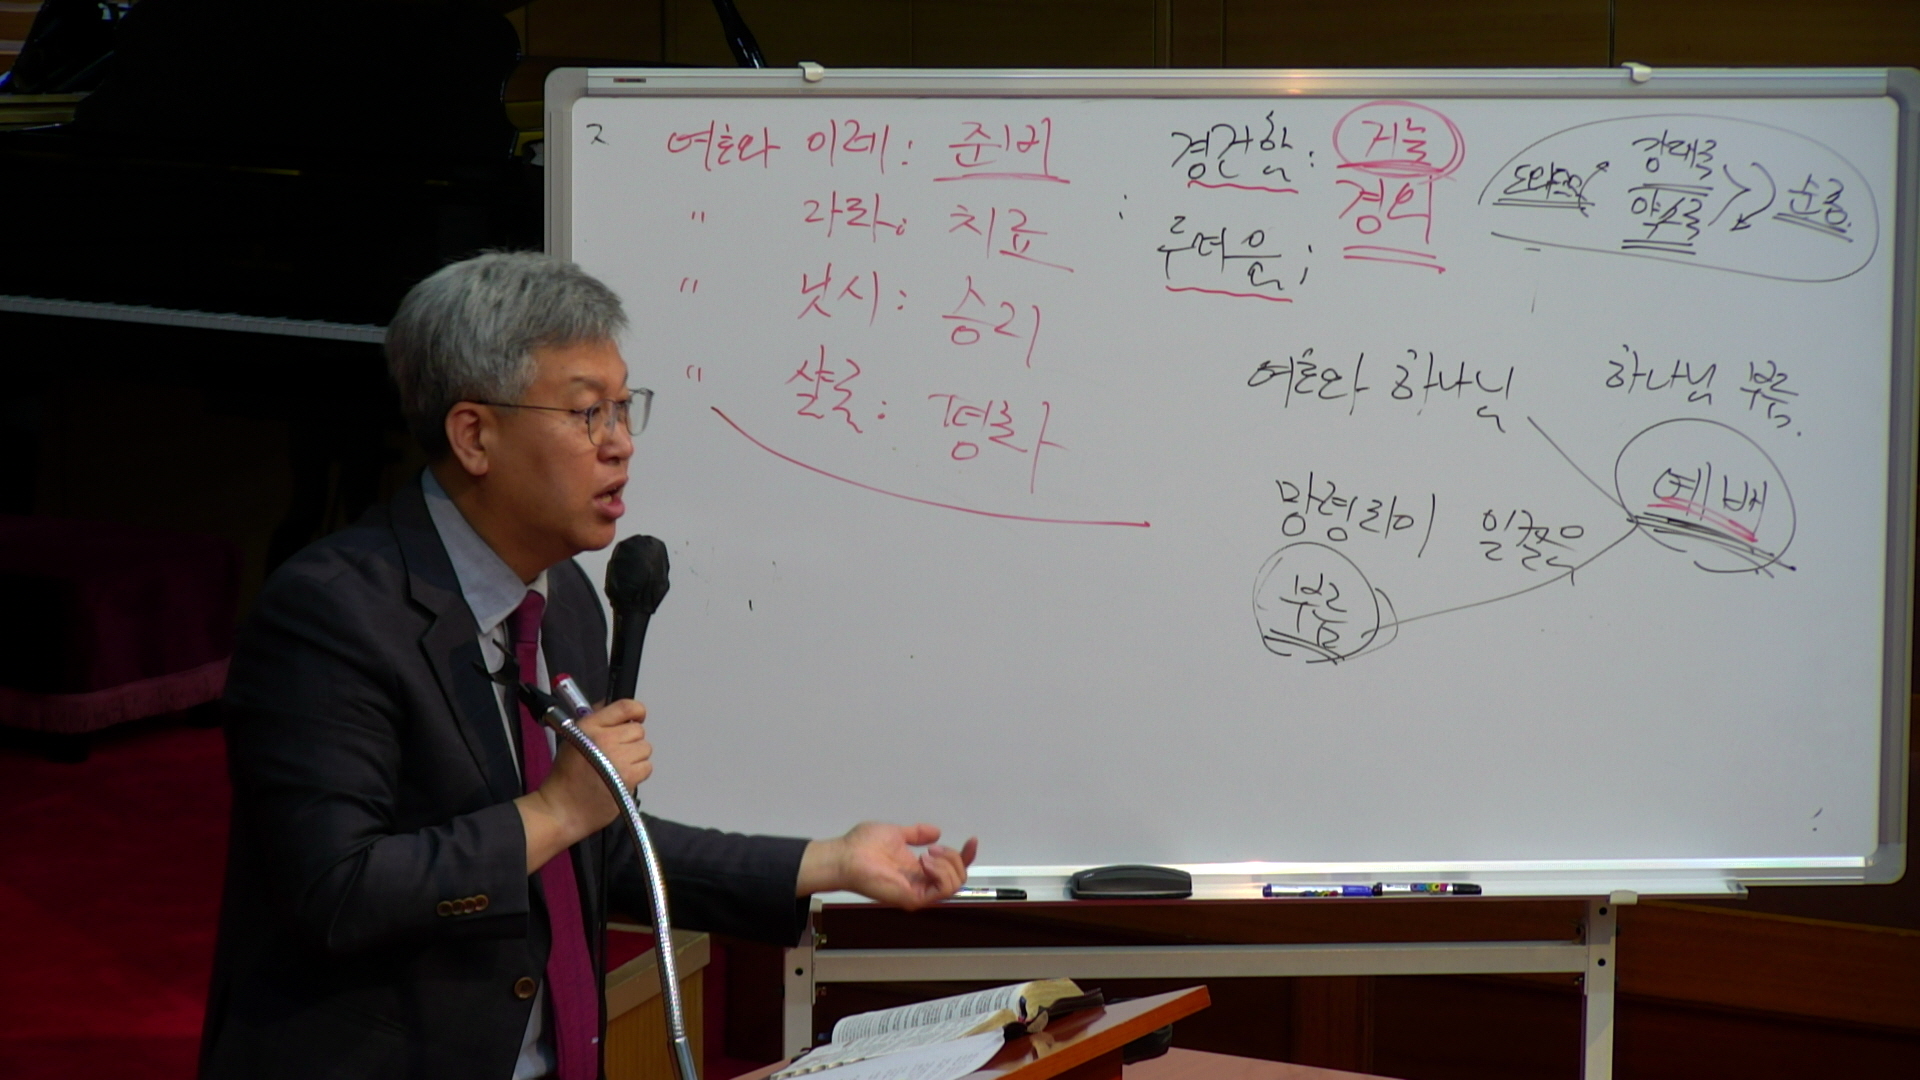 ㅈ
여호와 이레: 준비
" 라파: 치료
" 낫시: 승리
" 샬롬: 평화
경건함: 거늘
: 경외
두려움;
강대국
약소국 순종.
여호와 하나님
하나님 부름.
예배
망령되이 일컫은
부름